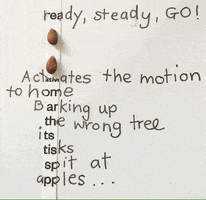 ready, steady, GO!
Activates the motion
to home
Barking up
the wrong tree
its
tisks
spit at
apples...